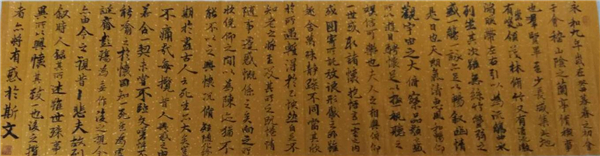 永和九年歲在癸丑暮春之初會
于會稽山陰之蘭亭脩禊事
也羣賢畢至少長咸集此地
有崇山峻領茂林脩竹又有清流激
湍暎帶左右引以為流觴曲水
列坐其次雖無絲竹管弦之
盛一觴一詠亦足以暢敘幽情
是日也天朗氣清惠風和暢仰
觀宇宙之大俯察品類之盛
所以遊目騁懷足以極視聽之
娛信可樂也夫人之相與俯仰
一世或取諸懷抱悟言一室之內
或因寄所託放浪形骸之外雖
趣舍萬殊靜躁不同當其欣
於所遇暫得於己快然自足不
知老之將至及其所之既倦情
隨事遷感慨係之矣向之所
欣俛仰之間以為陳迹猶不
能不以之興懷況脩短隨化終
期於盡古人云死生亦大矣豈
不痛哉每攬昔人興感之由
若合一契未嘗不臨文嗟悼不
能喻之於懷固知一死生為虛
誕齊彭殤為妄作後之視今
亦由今之視昔悲夫故列
敘時人錄其所述雖世殊事
異所以興懷其致一也後之攬
者亦將有感於斯文